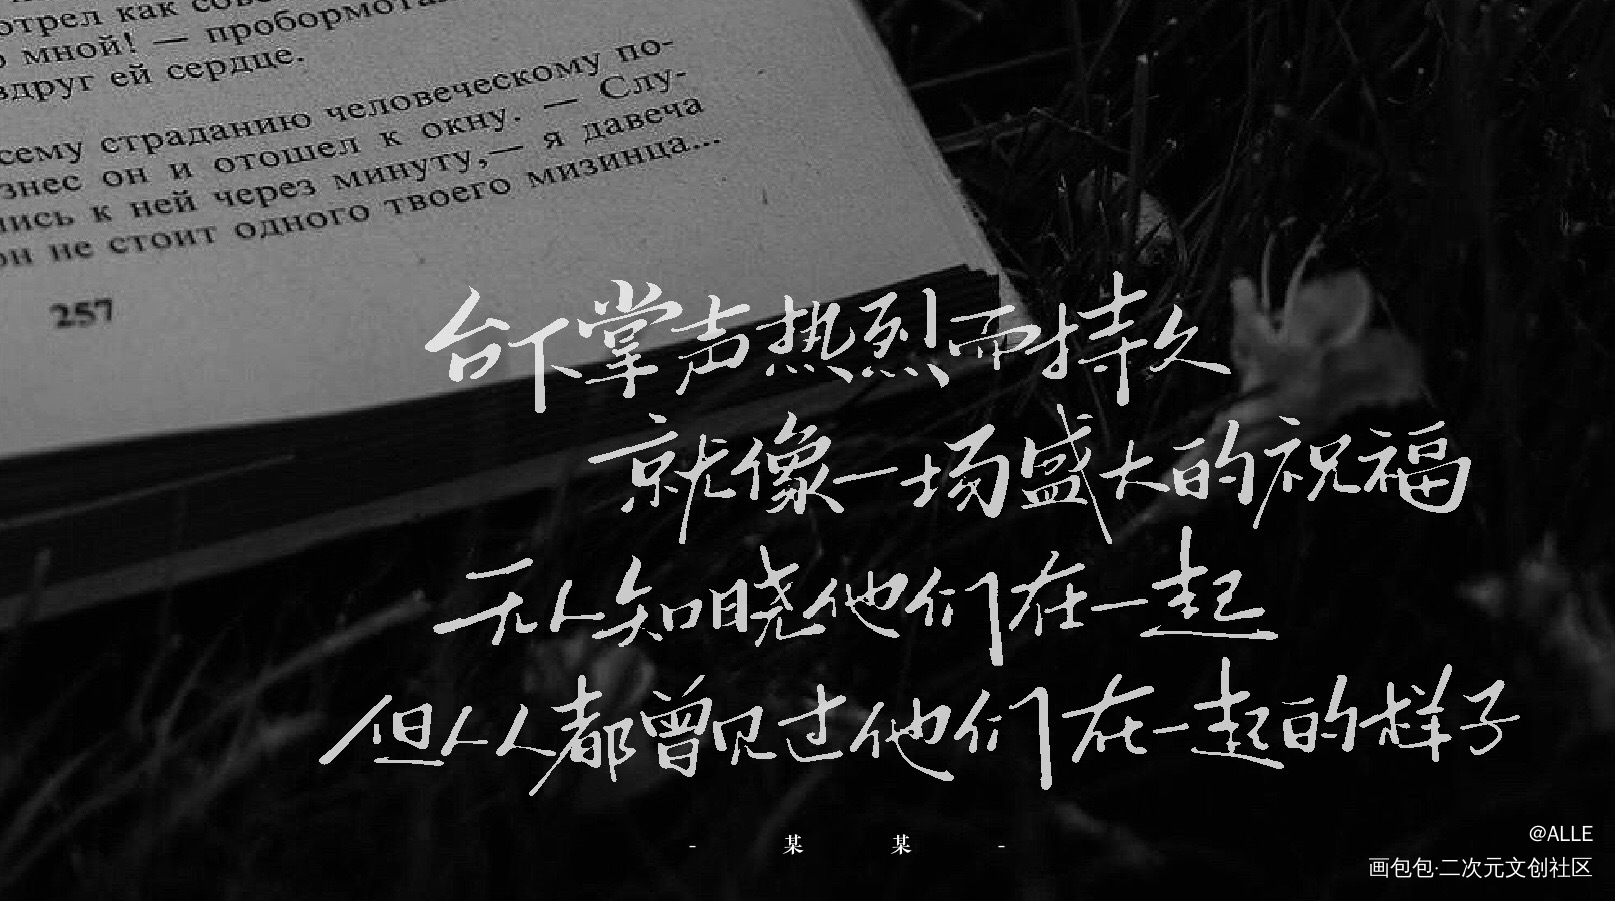 отрел как
мной! — пробормота
вдруг ей сердце.
сему страданию человеческому по-
знес он и отошел к окну. — Слу-
лись к ней через минуту,— я давеча
он не стоит одного твоего мизинца...
257
台下掌声热烈而持久
就像一场盛大的祝福
无人知晓他们在一起
但人人都曾见过他们在一起的样子
- 某 某 -
@ALLE
画包包·二次元文创社区